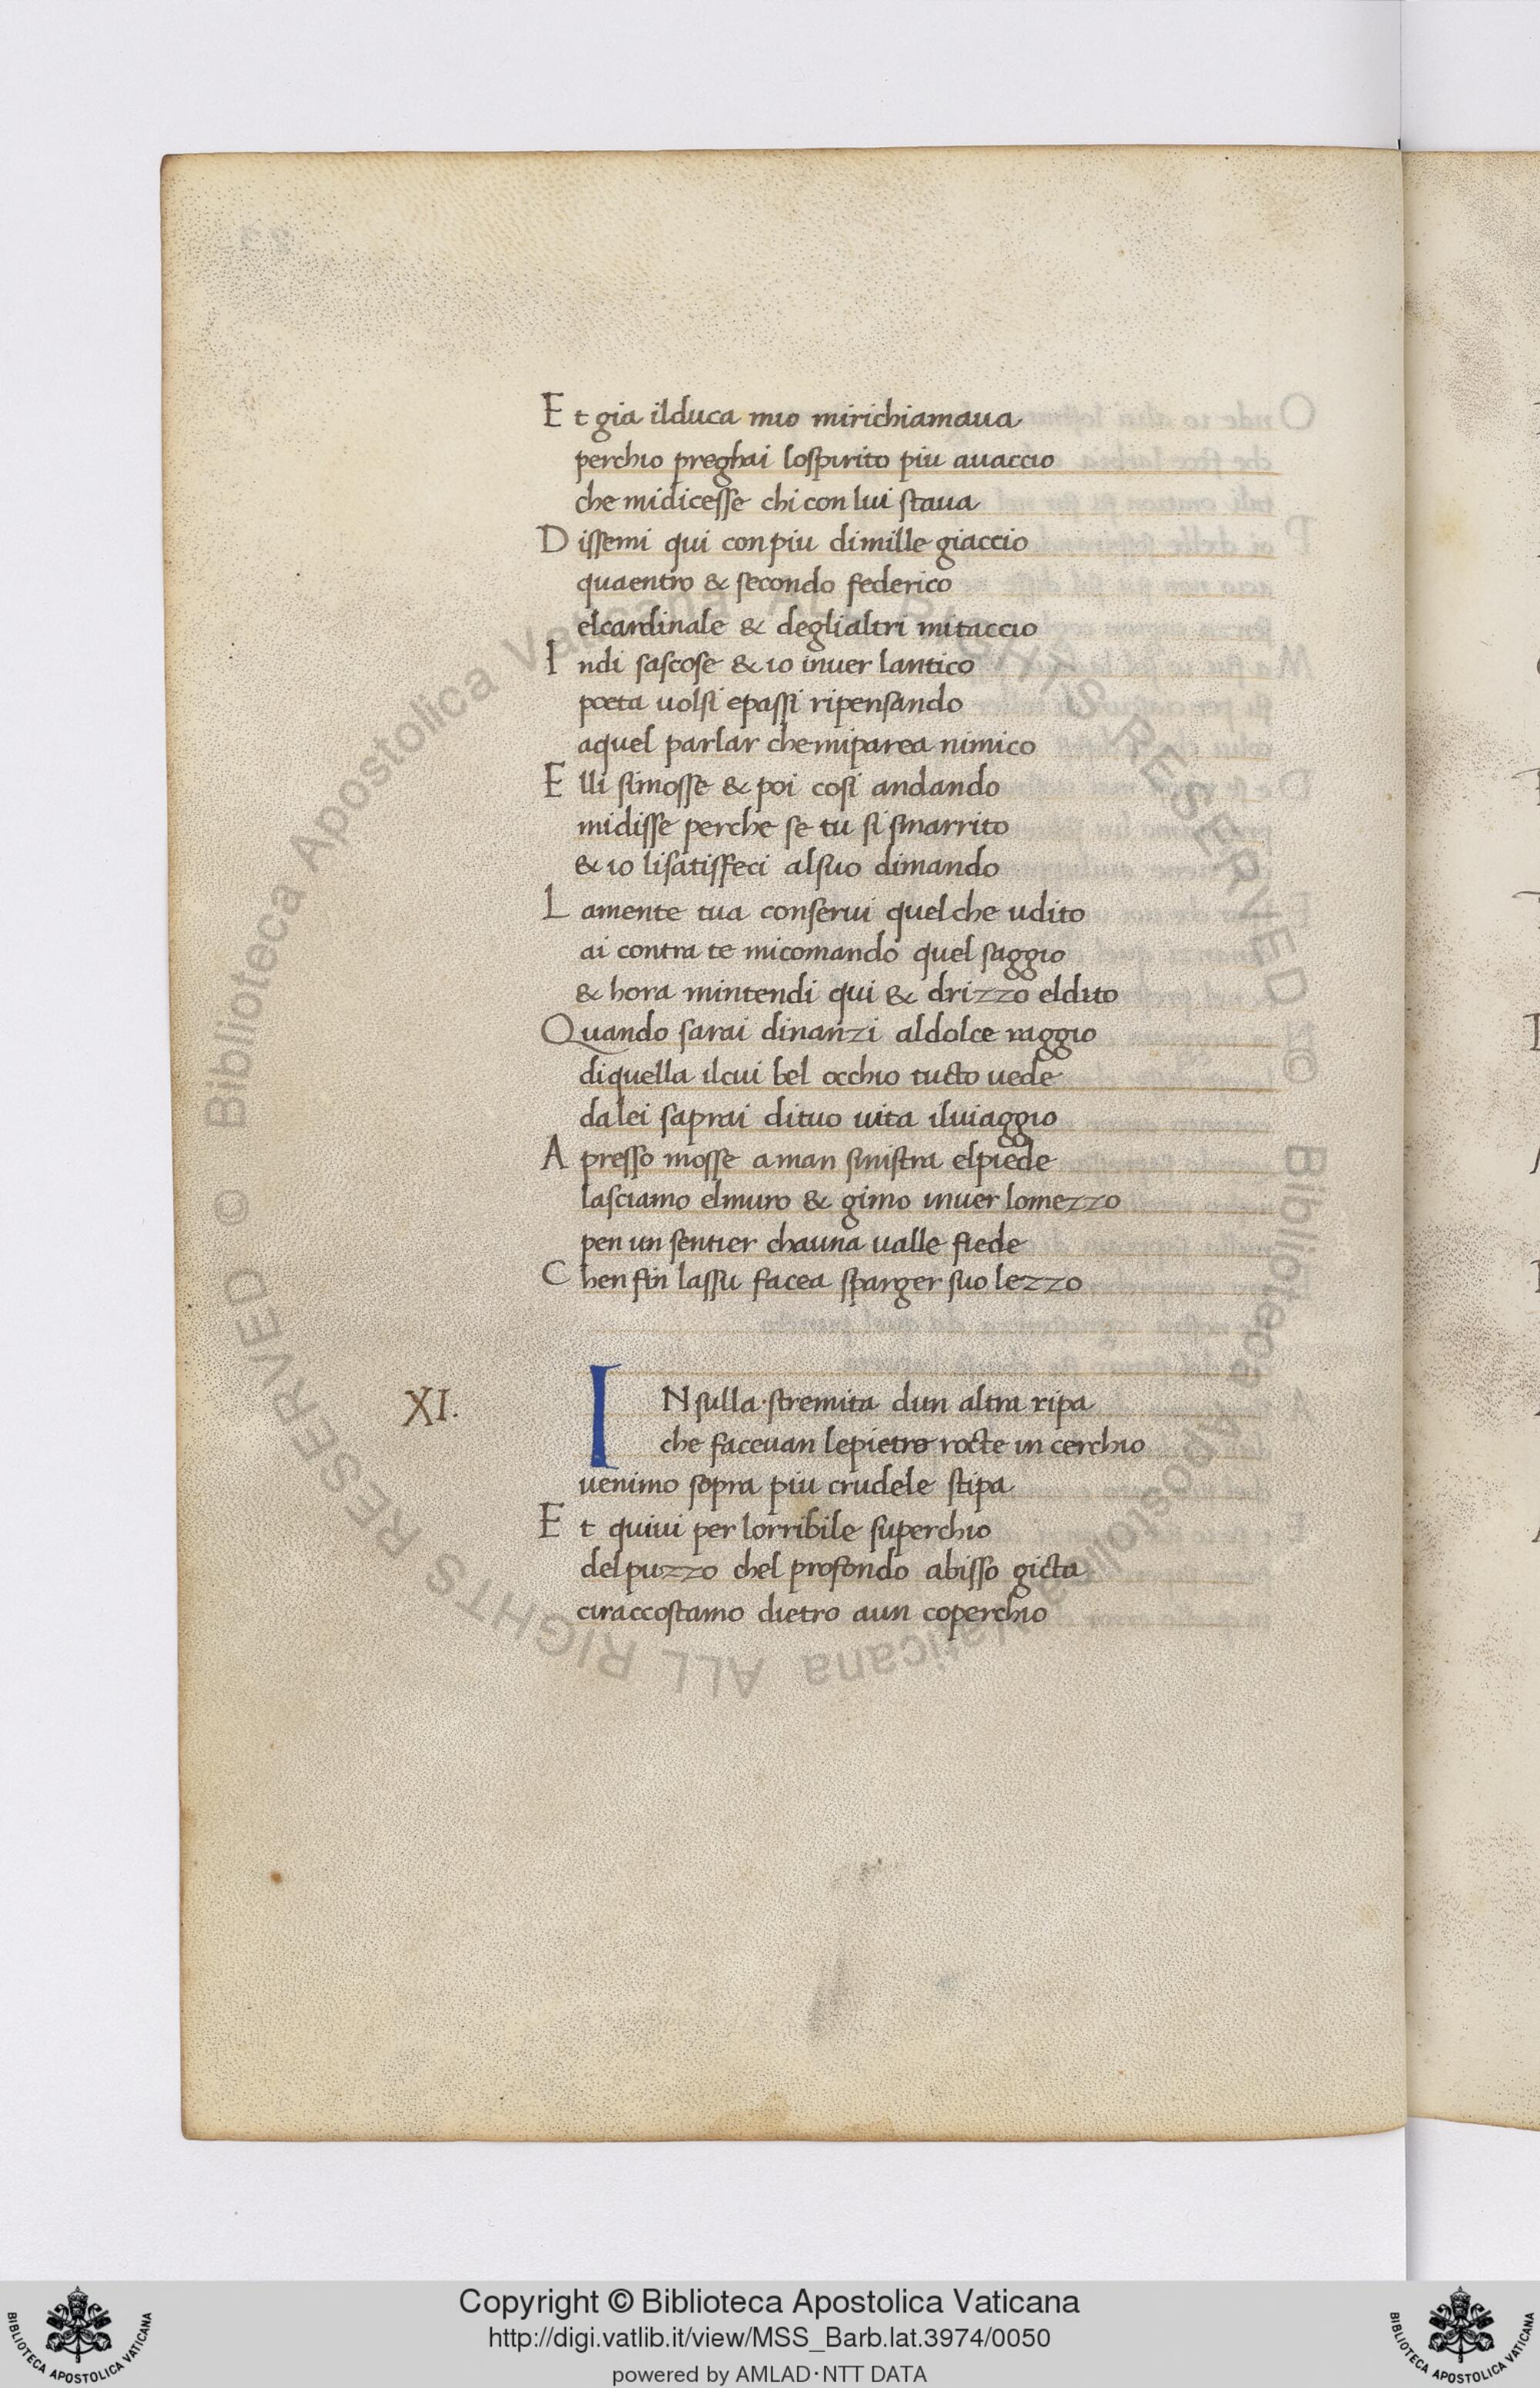 Et gia ilduca mio mirichiamaua
perchio preghai lospirito piu auaccio
che midicesse chi con lui staua
Dissemi qui con piu dimille giaccio
quaentro & secondo federico
elcardinale & deglialtri mitaccio
Indi sascose & io inuer lantico
poeta uolsi epassi ripensando
aquel parlar chemiparea nimico
Elli simosse & poi cosi andando
midisse perche se tu si smarrito
& io lisatisfeci alsuo dimando
Lamente tua conserui quelche udito
ai contra te micomando quel saggio
& hora mintendi qui & drizzo eldito
Quando sarai dinanzi aldolce raggio
diquella ilcui bel occhio tucto uede
dalei saprai dituo uita iluiaggio
Apresso mosse aman sinistra elpiede
lasciamo elmuro & gimo inuer lomezzo
pen un sentier chauna ualle fiede
Chenfin lassu facea sparger suo lezzo
XI.
INsulla stremita dun altra ripa
che faceuan lepietre rocte in cerchio
uenimo sopra piu crudele stipa
Et quiui per lorribile superchio
delpuzzo chel profondo abisso gicta
ciraccostamo dietro aun coperchio
Biblioteca Apostolica Vaticana ALL RIGHTS RESERVED ©
Copyright © Biblioteca Apostolica Vaticana
http://digi.vatlib.it/view/MSS_Barb.lat.3974/0050
powered by AMLAD·NTT DATA
BIBLIOTECA APOSTOLICA VATICANA
BIBLIOTECA APOSTOLICA VATICANA